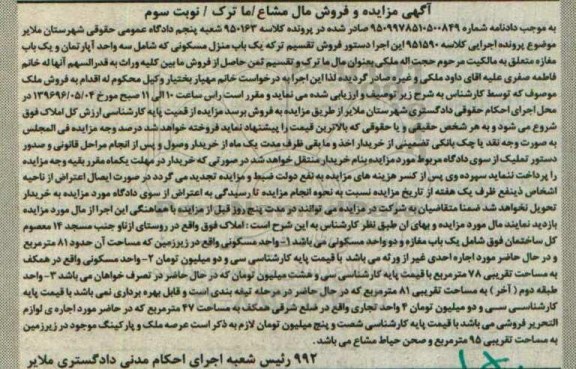 آگهی مزایده و فروش مال مشاع /ما ترک / نوبت سوم
به موجب دادنامه شماره ۹۵۰۹۹۷۸۵۱۰۵۰۰۸۴۹ صادر شده در پرونده کلاسه ۹۵۰۱۶۳ شعبه پنجم دادگاه عمومی حقوقی شهرستان ملایر
موضوع پرونده اجرایی کلاسه ۹۵۱۵۹۰ این اجرا دستور فروش تقسیم ترکه یک باب منزل مسکونی که شامل سه واحد آپارتمان و یک باب
مغازه متعلق به مالکیت مرحوم حجت اله ملکی بعنوان مال ما ترک و تقسیم ثمن حاصل از فروش ما بین کلیه وراث به قدرالسهم آنها له خانم
فاطمه صفری علیه اقای داود ملکی و غیره صادر گردیده لذا این اجرا به درخواست خانم مهیار بختیار وکیل محکوم له اقدام به فروش ملک
موصوف که توسط کارشناس به شرح زیر توصیف و ارزیابی شده می نماید و مقرر است راس ساعت ۱۰ الی ۱۱ صبح مورخ ۱۳۹۶۹۶/۰۵/۰۴ در
محل اجرای احکام حقوقی دادگستری شهرستان ملایر از طریق مزایده به فروش برسد مزایده از قیمت پایه کارشناسی ارزش کل املاک فوق
شروع می شود و به هر شخص حقیقی و یا حقوقی که بالاترین قیمت را پیشنهاد نماید فروخته خواهد شد ده درصد وجه مزایده فی المجلس
به صورت وجه نقد یا چک بانکی تضمینی از خریدار اخذ و ما بقی ظرف مدت یک ماه از خریدار وصول و پس از انجام مراحل قانونی و صدور
دستور تملیک از سوی دادگاه مربوط مورد مزایده بنام خریدار منتقل خواهد شد در صورتی که خریدار در مهلت یکماه مقرر بقیه وجه مزایده
را پرداخت ننماید سپرده وی پس از کسر هزینه های مزایده به نفع دولت ضبط و مزایده تجدید می گردد در صورت ایصال اعتراض از ناحیه
اشخاص ذینفع ظرف یک هفته از تاریخ مزایده نسبت به نحوه انجام مزایده تا رسیدگی به اعتراض از سوی دادگاه مورد مزایده به خریدار
تحویل نخواهد شد ضمنا متقاضیان به شرکت در مزایده می توانند در مدت پنج روز قبل از مزایده با هماهنگی این اجرا از مال مورد مزایده
بازدید نمایند مال مورد مزایده و بهای ان طبق نظر کارشناس به این شرح است : املاک فوق واقع در روستای ازناو جنب مسجد ۱۴ معصوم
کل ساختمان فوق شامل یک باب مغازه و دو واحد مسکونی می باشد ۱- واحد مسکونی واقع در زیرزمین که مساحت آن حدود ۸۱ مترمربع
و در حال حاضر مورد اجاره احدی غیر از ورثه می باشد با قیمت پایه کارشناسی سی و دو میلیون تومان ۲- واحد مسکونی واقع در همکف
به مساحت تقریبی ۷۸ مترمربع با قیمت پایه کارشناسی سی و هشت میلیون تومان که در حال حاضر در تصرف خواهان می باشد ۳- واحد
طبقه دوم ( آخر ) به مساحت تقریبی ۸۱ مترمربع که در حال حاضر در مرحله تیغه بندی است و قابل بهره برداری نمی باشد با قیمت پایه
کارشناسی سی و دو میلیون تومان ۴ واحد تجاری واقع در ضلع شرقی همکف به مساحت ۴۷ مترمربع که در حاضر مورد اجاره ی لوازم
التحریر فروشی می باشد با قیمت پایه کارشناسی شصت و پنج میلیون تومان لازم به ذکر است عرصه ملک و پارکینگ موجود در زیرزمین
به مساحت تقریبی ۹۵ مترمربع و صحن حیاط مشاع می باشد .
۹۹۲ رئیس شعبه اجرای احکام مدنی دادگستری ملایر